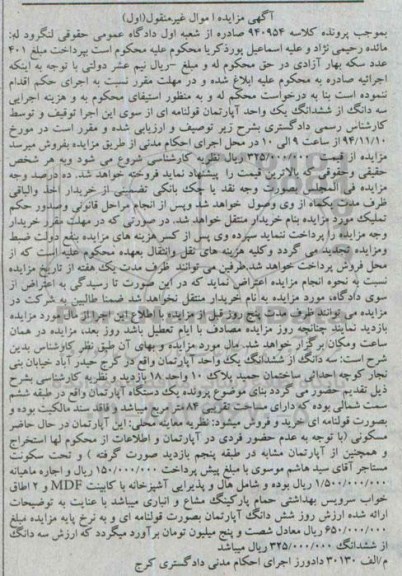 آگهی مزایده اموال غیرمنقول(اول)
بموجب پرونده کلاسه ۹۴۰۹۵۴ صادره از شعبه اول دادگاه عمومی حقوقی لنگرود له:
مائده رحیمی نژاد و علیه اسماعیل پورذکریا محکوم علیه محکوم است بپرداخت مبلغ ۴۰۱
عدد سکه بهار آزادی در حق محکوم له و مبلغ -ریال نیم عشر دولتی با توجه به اینکه
اجرائیه صادره به محکوم علیه ابلاغ شده و در مهلت مقرر نسبت به اجرای حکم اقدام
ننموده است بنا به درخواست محکم له و به منظور استیفای محکوم به و هزینه اجرایی
سه دانگ از ششدانگ یک واحد آپارتمان قولنامه ای از سوی این اجرا توقیف و توسط
کارشناس رسمی دادگستری بشرح زیر توصیف و ارزیابی شده و مقرر است در مورخ
۹۴/۱۱/۱۰ از ساعت ۹ الی ۱۰ در محل اجرای احکام مدنی از طریق مزایده بفروش میرسد
مزایده از قیمت ۳۲۵/۰۰۰/۰۰۰ ریال نظریه کارشناسی شروع می شود وبه هر شخص
حقیقی وحقوقی که بالاترین قیمت را پیشنهاد نماید فروخته خواهد شد. ده درصد وجه
مزایده فی المجلس بصورت وجه نقد یا چک بانکی تضمینی از خریدار اخذ والباقی
ظرف مدت یکماه از وی وصول خواهد شد وپس از انجام مراحل قانونی وصدور حکم
تملیک مورد مزایده بنام خریدار منتقل خواهد شد. در صورتی که در مهلت مقرر خریدار
وجه مزایده را پرداخت ننماید سپرده وی پس از کسر هزینه های مزایده بنفع دولت ضبط
ومزایده تجدید می گردد وکلیه هزینه های نقل وانتقال بعهده محکوم علیه است که از
محل فروش پرداخت خواهد شد.طرفین می توانند ظرف مدت یک هفته از تاریخ مزایده
نسبت به نحوه انجام مزایده اعتراض نماید که در این صورت تا رسیدگی به اعتراض از
سوی دادگاه، مورد مزایده به نام خریدار منتقل نخواهد شد ضمنا طالبین به شرکت در
مزایده می توانند ظرف مدت پنج روز قبل از مزایده با اطلاع این اجرا از مال مورد مزایده
بازدید نمایند چنانچه روز مزایده مصادف با ایام تعطیل باشد روز بعد، مزایده در همان
ساعت ومکان برگزار خواهد شد. مال مورد مزایده و بهای آن طبق نظر کارشناس بدین
شرح است: سه دانگ از ششدانگ یک واحد آپارتمان واقع در کرج حیدر آباد خیابان بنی
نجار کوچه احداثی ساختمان حمید بلاک ۱۰ واحد ۱۸ بازدید و نظریه کارشناسی بشرح
ذیل تقدیم حضور می گردد بنای موضوع پرونده یک دستگاه آپارتمان واقع در طبقه ششم
سمت شمالی بوده که دارای مساحت تقریبی ۸۴ متر مربع میباشد و فاقد سند مالکیت بوده و
بصورت قولنامه ای خرید و فروش میشود: نظریه معاینه محلی: این آپارتمان در حال حاضر
مسکونی (با توجه به عدم حضور فردی در آپارتمان و اطلاعات از محکوم لها استخراج
و همچنین از آپارتمان مشابه در طبقه پنجم بازدید صورت گرفته ) و تحت سکونت
مستاجر آقای سید هاشم موسوی با مبلغ پیش پرداخت ۱۵۰/۰۰۰/۰۰۰ ریال و اجاره ماهیانه
۱/۵۰۰/۰۰۰/۰۰۰ ریال بوده و شامل هال و پذیرایی آشپزخانه با کابینت MDF و ۲ اطاق
خواب سرویس بهداشتی حمام پارکینگ مشاع و انباری میباشد با عنایت به توضیحات
ارائه شده ارزش روز شش دانگ آپارتمان بصورت قولنامه ای و به نرخ پایه مزایده مبلغ
۶۵۰/۰۰۰/۰۰۰ ریال معادل شصت و پنج میلیون تومان برآورد میگردد که ارزش سه دانگ
از ششدانگ ۳۲۵/۰۰۰/۰۰۰ ریال میباشد
م/الف ۳۰۱۳۰ دادورز اجرای احکام مدنی دادگستری کرج